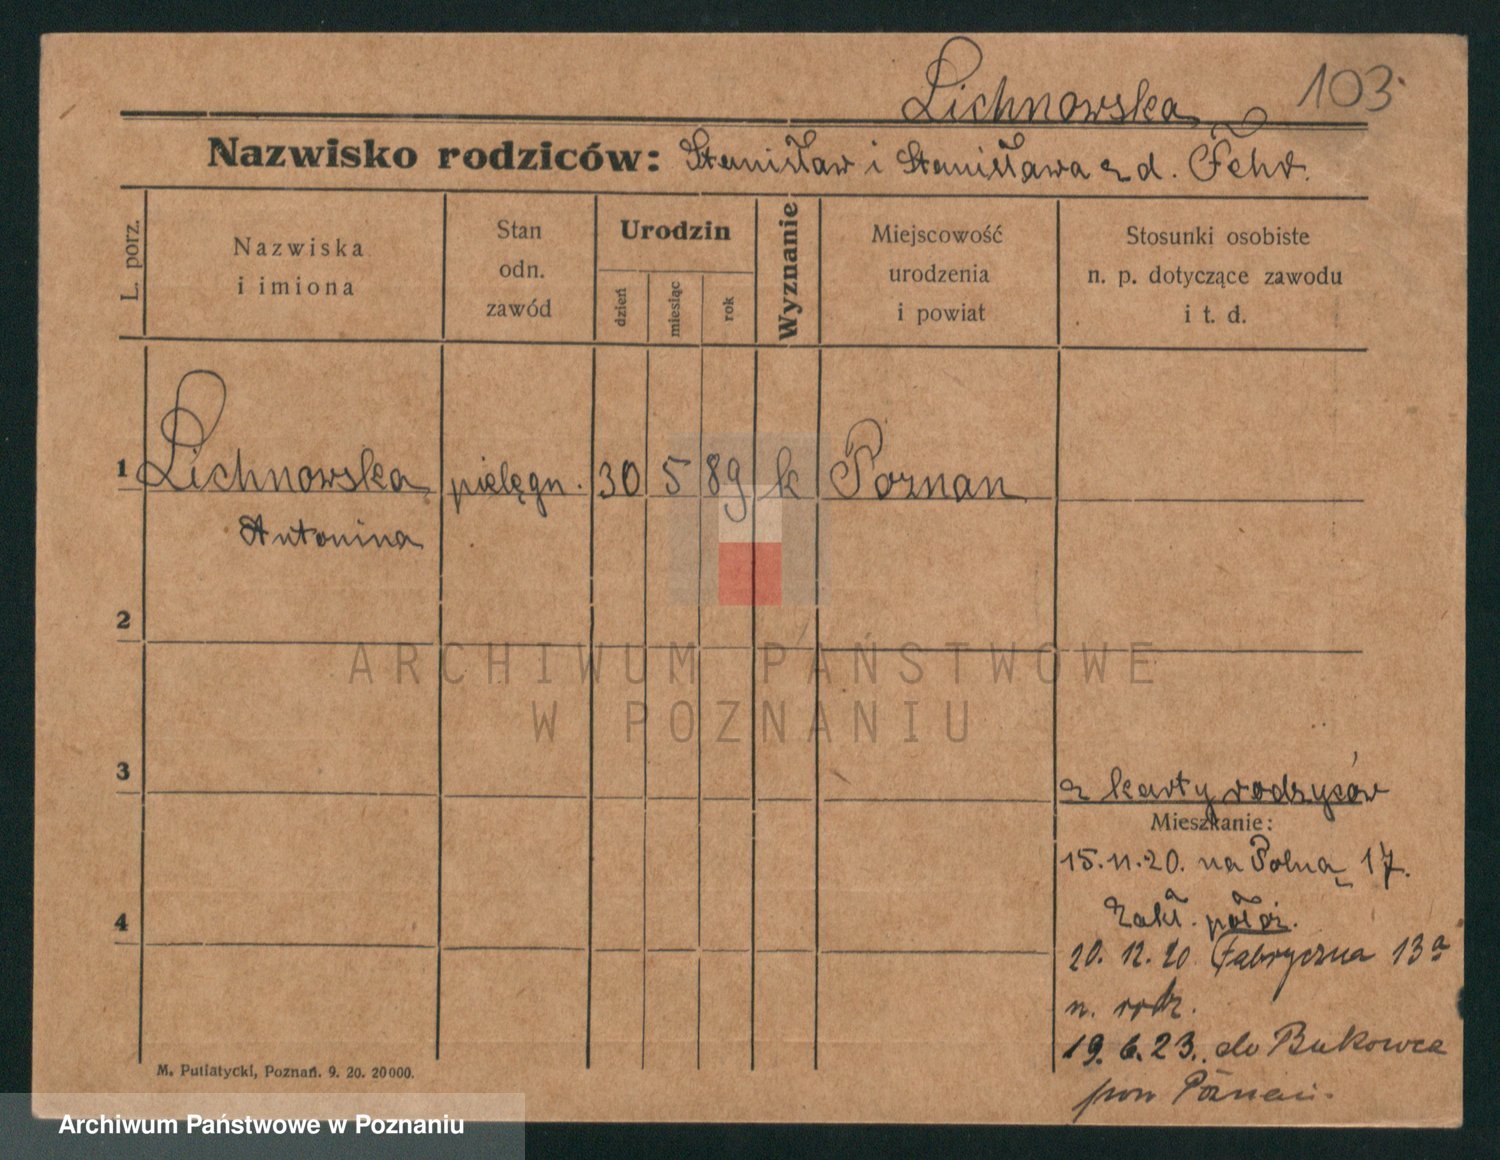 Lichnowska 103.
Nazwisko rodziców: Stanisław i Stanisława z d. Fehr.
L. porz.
Nazwiska
i imiona
Stan
odn.
zawód
Urodzin
dzień
miesiąc
rok
Wyznanie
Miejscowość
urodzenia
i powiat
Stosunki osobiste
n. p. dotyczące zawodu
i t. d.
1 Lichnowska pielęgn. 30 5 89 k Poznan
Antonina
2
ARCHIWUM PAŃSTWOWE
W POZNANIU
3
z karty rodzyców
Mieszkanie:
15.11.20. na Polną 17.
Zakł. położ.
4
20. 12. 20 Fabryczna 13a
n. rodz.
19. 6. 23. do Bukowca
pow
M. Putiatycki, Poznań. 9. 20. 20000.
Archiwum Państwowe w Poznaniu